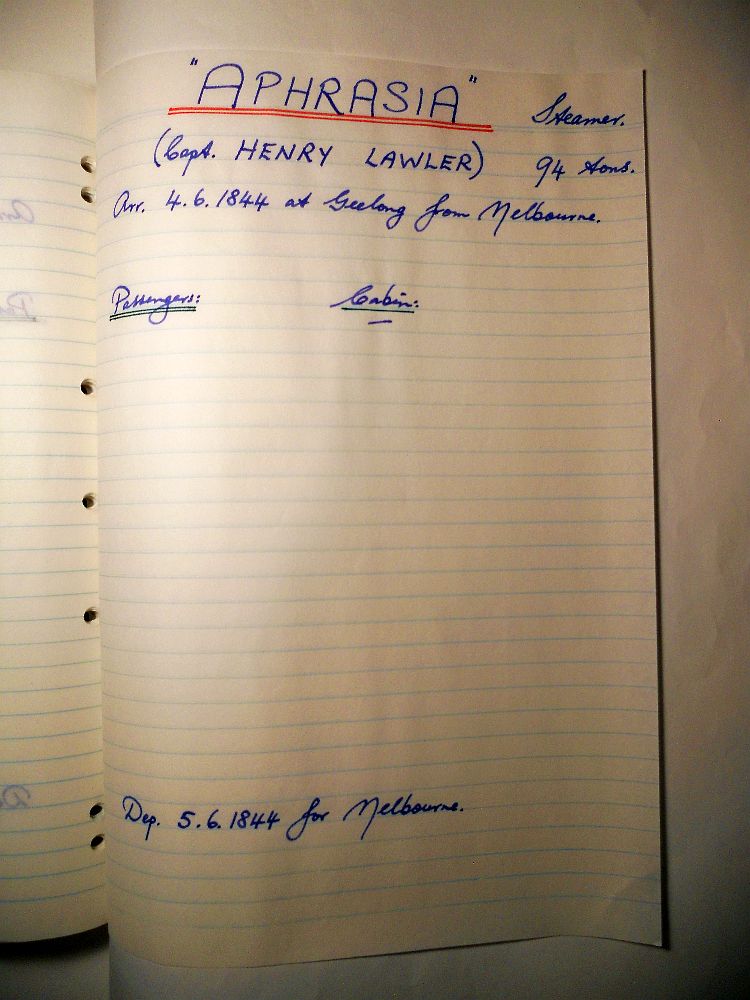 "APHRASIA" Steamer.
(Capt. HENRY LAWLER) 94 tons.
Arr. 4.6.1844 at Geelong from Melbourne.
Passengers: Cabin:
—
Dep. 5.6.1844 for Melbourne.